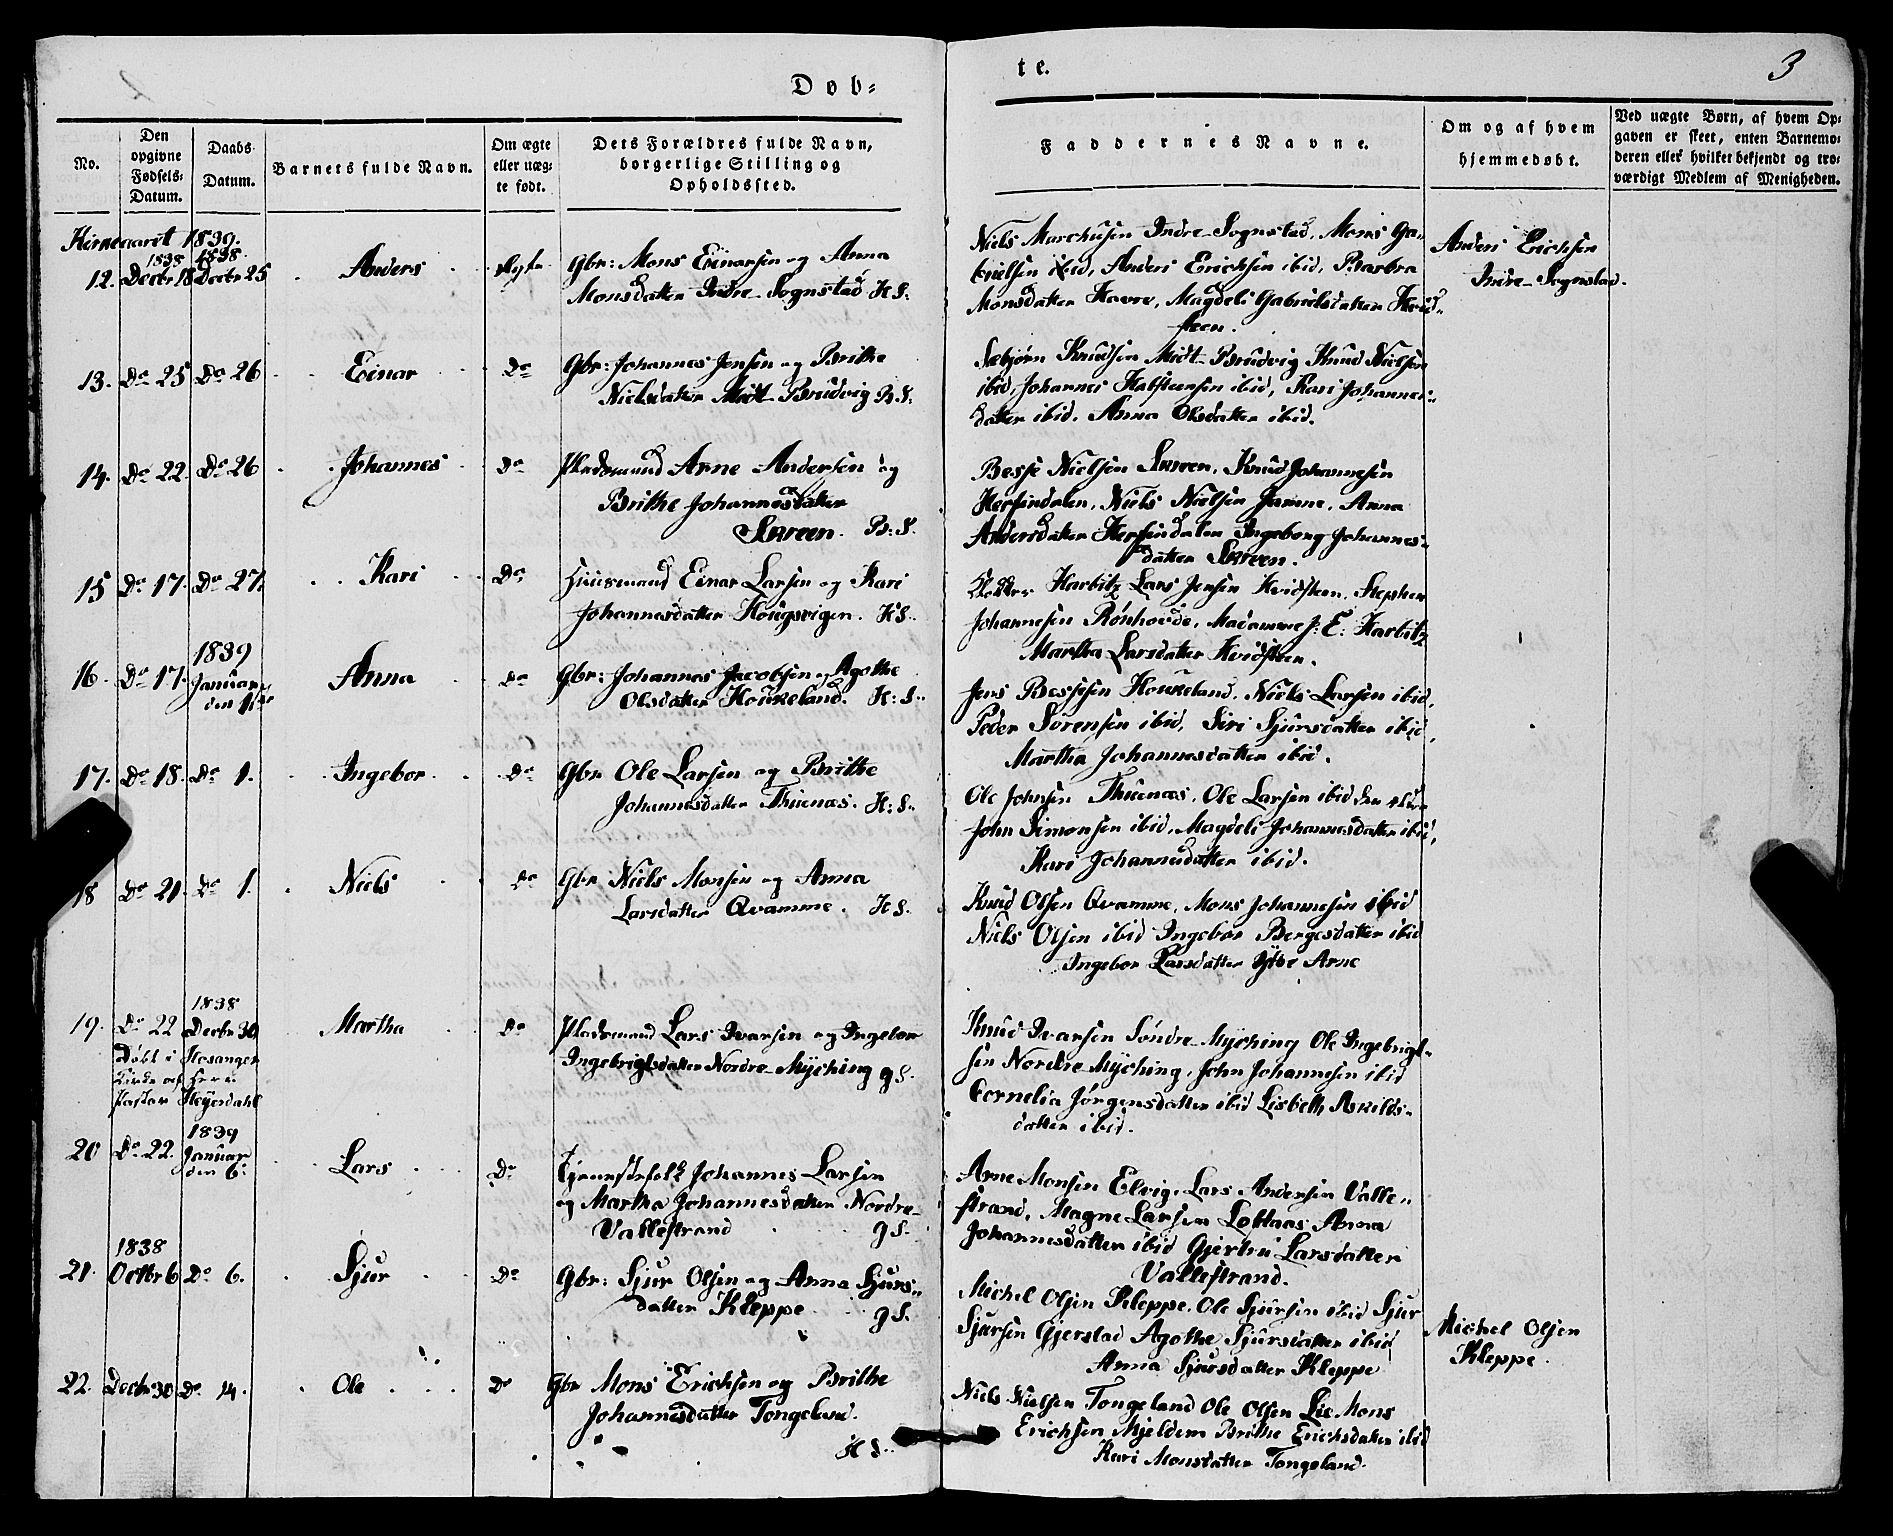 Døb=
te.
3
No.
Den opgivne Fødsels-Datum.
Daabs Datum.
Barnets fulde Navn.
Om ægte eller uægte født.
Dets Forældres fulde Navn, borgerlige Stilling og Opholdssted.
Faddernes Navne.
Om og af hvem hjemmedøbt.
Ved uægte Børn, af hvem Opgaven er skeet, enten Barnemoderen eller hvilket bekjendt og troværdigt Medlem af Menigheden.
Kirkeaaret 1839.
1838 1838.
12. Decbr 18 Decbr 25 Anders Ægte
Gbr: Mons Einarsen og Anna
Monsdatter Indre Sognstad H S:
Niels Marchusen Indre Sognstad, Mons Ga-
brielsen ibid, Anders Erichsen ibid, Barbra
Monsdatter Havre, Magdeli Gabrielsdatter Hvid-
steen.
Anders Erichsen
Indre Sognstad.
13. Do 25 Do 26 Einar Do
Gbr: Johannes Jensen og Brithe
Nielsdatter Midt Brudvig B. S.
Sebjørn Knudsen Midt Brudvig Knud Nielsen
ibid, Johannes Halsteensen ibid, Kari Johannes-
datter ibid. Anna Olsdatter ibid.
14. Do 22. Do 26 Johannes Do
Pladsmand Arne Andersen og
Brithe Johannesdatter
Skreen. B: S.
Besse Nielsen Skreen, Knud Johannesen
Herfindalen, Niels Nielsen Jamne, Anna
Andersdatter Herfindalen Ingeborg Johannes-
datter Skreen.
15 Do 17. Do 27. Kari Do
Huusmand Einar Larsen og Kari
Johannesdatter Hougsvigen. H S.
Klokker Harbitz Lars Jensen Hvidsteen, Stephen
Johannesen Rønhovde, Madamme J: E: Harbitz
Martha Larsdatter Hvidsteen.
1839
16. Do 17. Januar den 1ste Anna Do
Gbr: Johannes Jacobsen og Agothe
Olsdatter Houkeland. H: S.
Jens Bessesen Houkeland, Niels Larsen ibid,
Peder Sørensen ibid, Siri Sjursdatter ibid,
Martha Johannesdatter ibid.
17. Do 18. Do 1. Ingebor Do
Gbr Ole Larsen og Brithe
Johannesdatter Thuenæs. H: S.
Ole Johnsen Thuenæs, Ole Larsen ibid den
John Simonsen ibid, Magdeli Johannesdatter ibid,
Kari Johannesdatter ibid.
18 Do 21. Do 1. Niels Do
Gbr Niels Monsen og Anna
Larsdatter Qvamme. H S.
Knud Olsen Qvamme, Mons Johannesen ibid
Niels Olsen ibid Ingebor Bergesdatter ibid
Ingebor Larsdatter Ytre Arne
1838
19. Do 22 Decbr 30 Martha Do
Døbt i Hosanger
Kirke af Herr
Pastor Heyerdahl
Pladsmand Lars Ivarsen og Ingebor
Ingebrigtsdatter Nordre Myching g S.
Knud Ivarsen Søndre Myching Ole Ingebrigt-
sen Nordre Myching, John Johannesen ibid
Cornelia Jørgensdatter ibid Lisbeth Askilds-
datter ibid.
1839
20 Do 22. Januar den 6. Lars Do
Tjenestefolk Johannes Larsen
og Martha Johannesdatter Nordre
Vallestrand g S.
Arne Monsen Elvig, Lars Andersen Valle-
strand, Magne Larsen Loftaas Anna
Johannesdatter ibid Gjertru Larsdatter
Vallestrand.
1838
21. Octbr 6 Do 6. Sjur Do
Gbr: Sjur Olsen og Anna Sjurs-
datter Kleppe g S.
Michel Olsen Kleppe, Ole Sjursen ibid Sjur
Sjursen Gjerstad Agothe Sjursdatter ibid
Anna Sjursdatter Kleppe
Michel Olsen
Kleppe.
22. Decbr 30 Do 14. Ole Do
Gbr Mons Erichsen og Brithe
Johannesdatter Tongeland.
H S.
Niels Nielsen Tongeland Ole Olsen Lie Mons
Erichsen Mjeldem Brithe Erichsdatter ibid
Kari Monsdatter Tongeland.